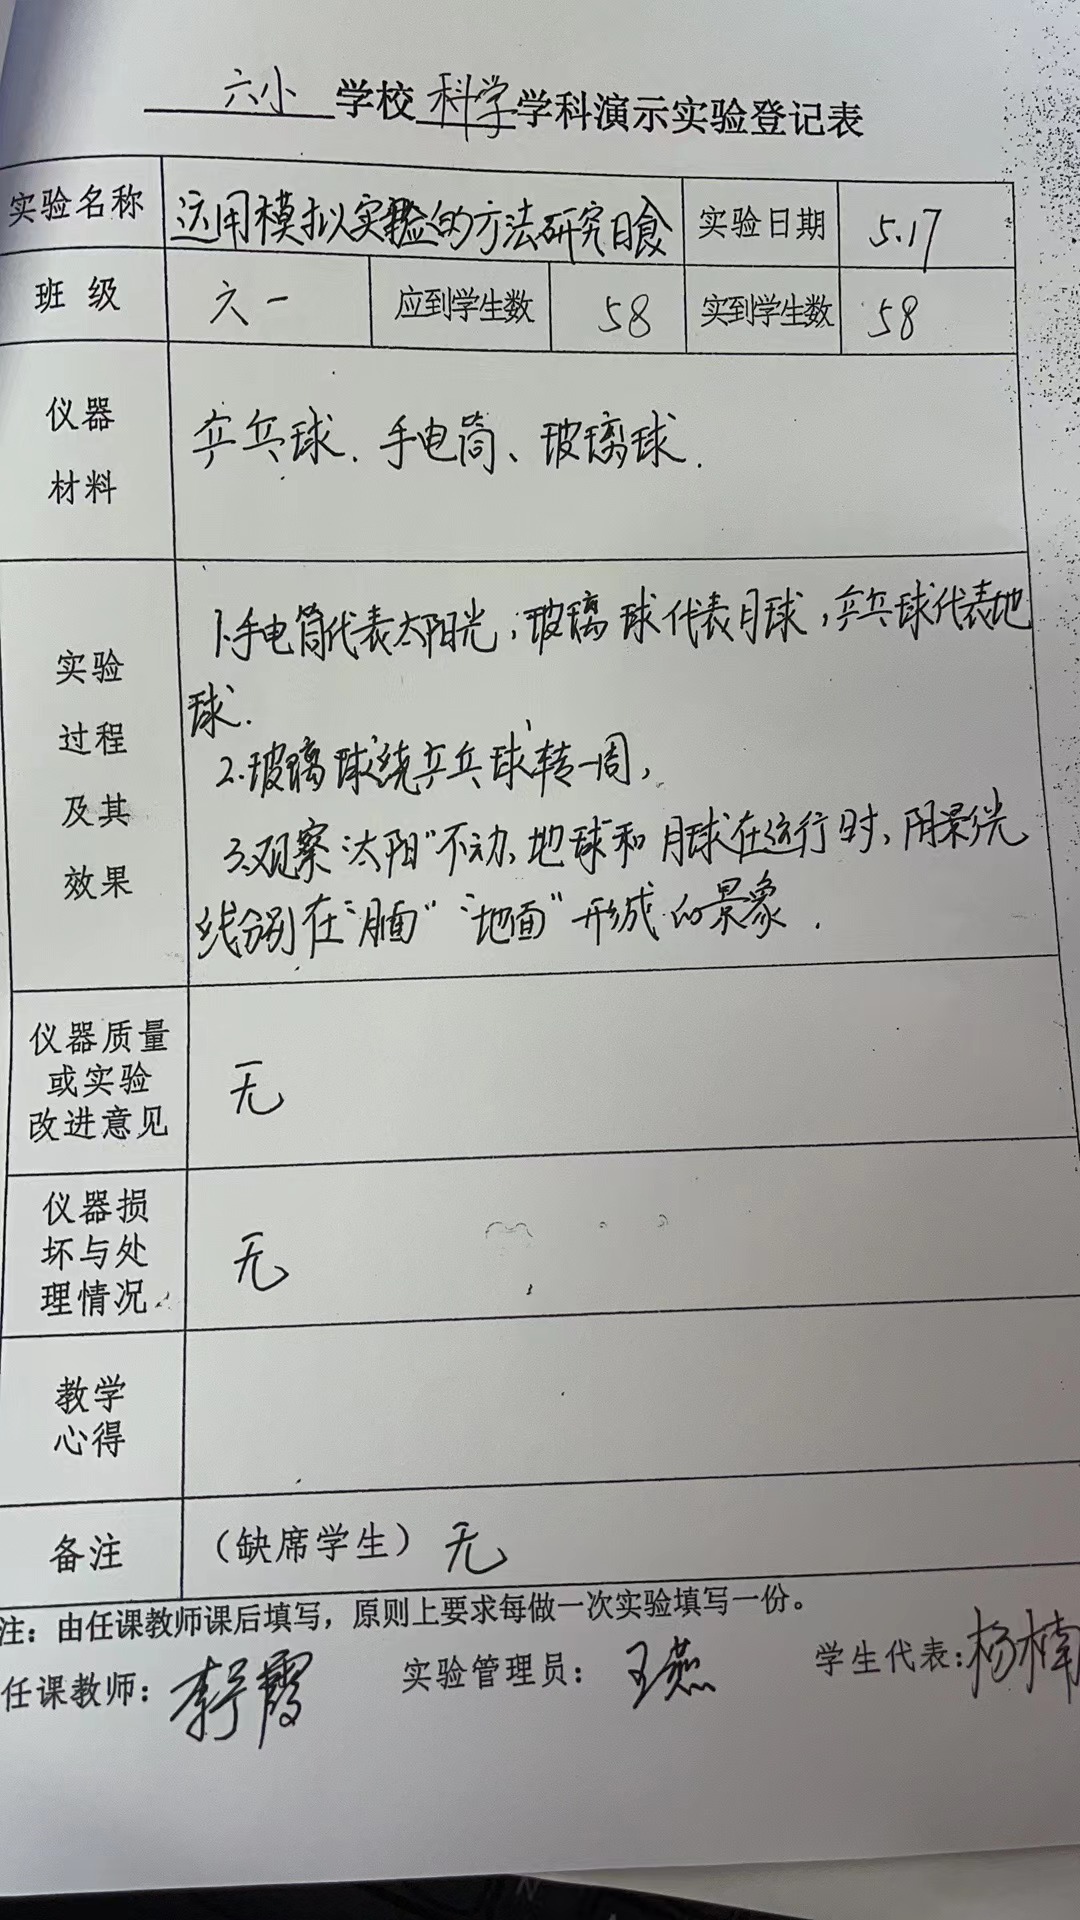 六小 学校 科学 学科演示实验登记表
实验名称 运用模拟实验的方法研究日食 实验日期 5.17
班 级 六一 应到学生数 58 实到学生数 58
仪器
材料
乒乓球、手电筒、玻璃球.
实验
过程
及其
效果
1.手电筒代表太阳光,玻璃球代表月球,乒乓球代表地
球.
2.玻璃球"绕乒乓球"转一周,
3.观察"太阳"不动、地球和月球在运行时,阴影光
线分别在"月面""地面"形成的景象.
仪器质量
或实验
改进意见
无
仪器损
坏与处
理情况
无
教学
心得
备注 (缺席学生) 无
注:由任课教师课后填写,原则上要求每做一次实验填写一份。
任课教师: 李霞 实验管理员: 王燕 学生代表: 杨楠